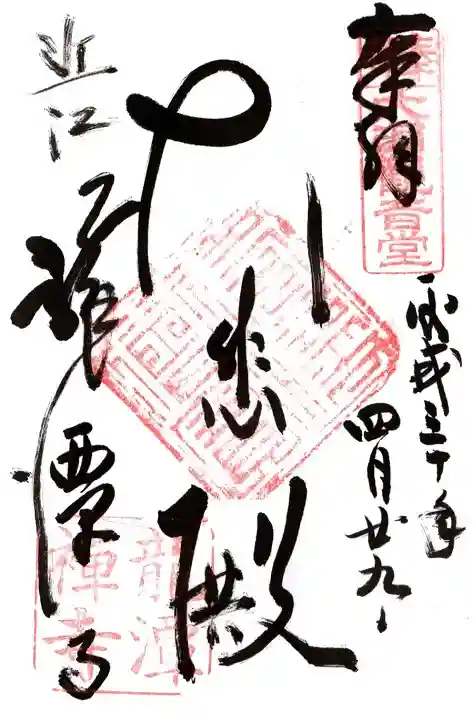 奉拝
平成三十年
四月廿九日
大悲殿
近江
龍潭寺
音堂
龍潭
禪寺